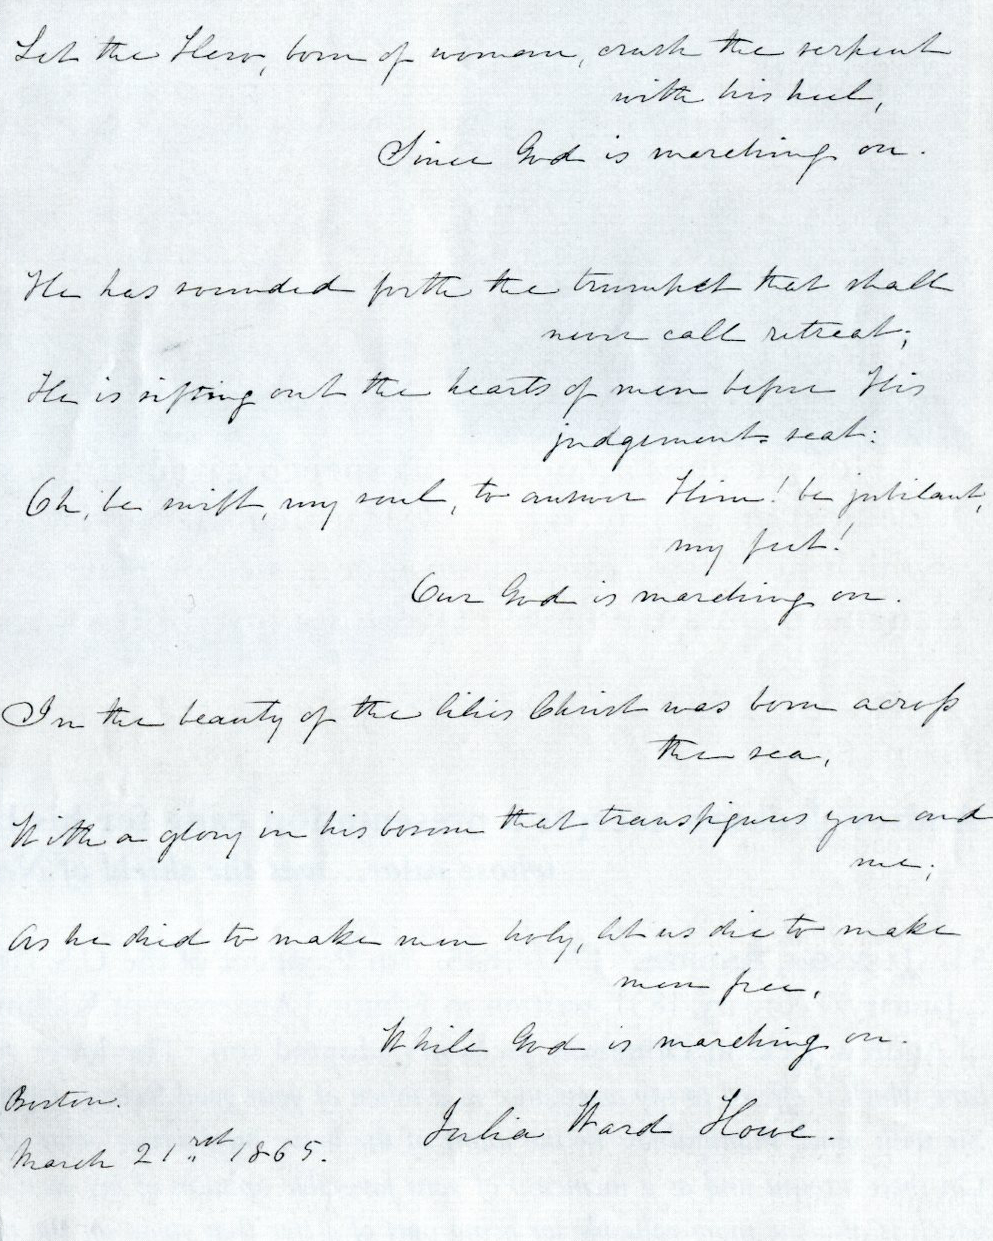 Let the Hero, born of woman, crush the serpent
with his heel,
Since God is marching on.
He has sounded forth the trumpet that shall
never call retreat;
He is sifting out the hearts of men before His
judgement-seat:
Oh, be swift, my soul, to answer Him! be jubilant,
my feet!
Our God is marching on.
In the beauty of the lilies Christ was born across
the sea,
With a glory in his bosom that transfigures you and
me;
As he died to make men holy, let us die to make
men free,
While God is marching on.
Boston.
March 21st 1865.
Julia Ward Howe